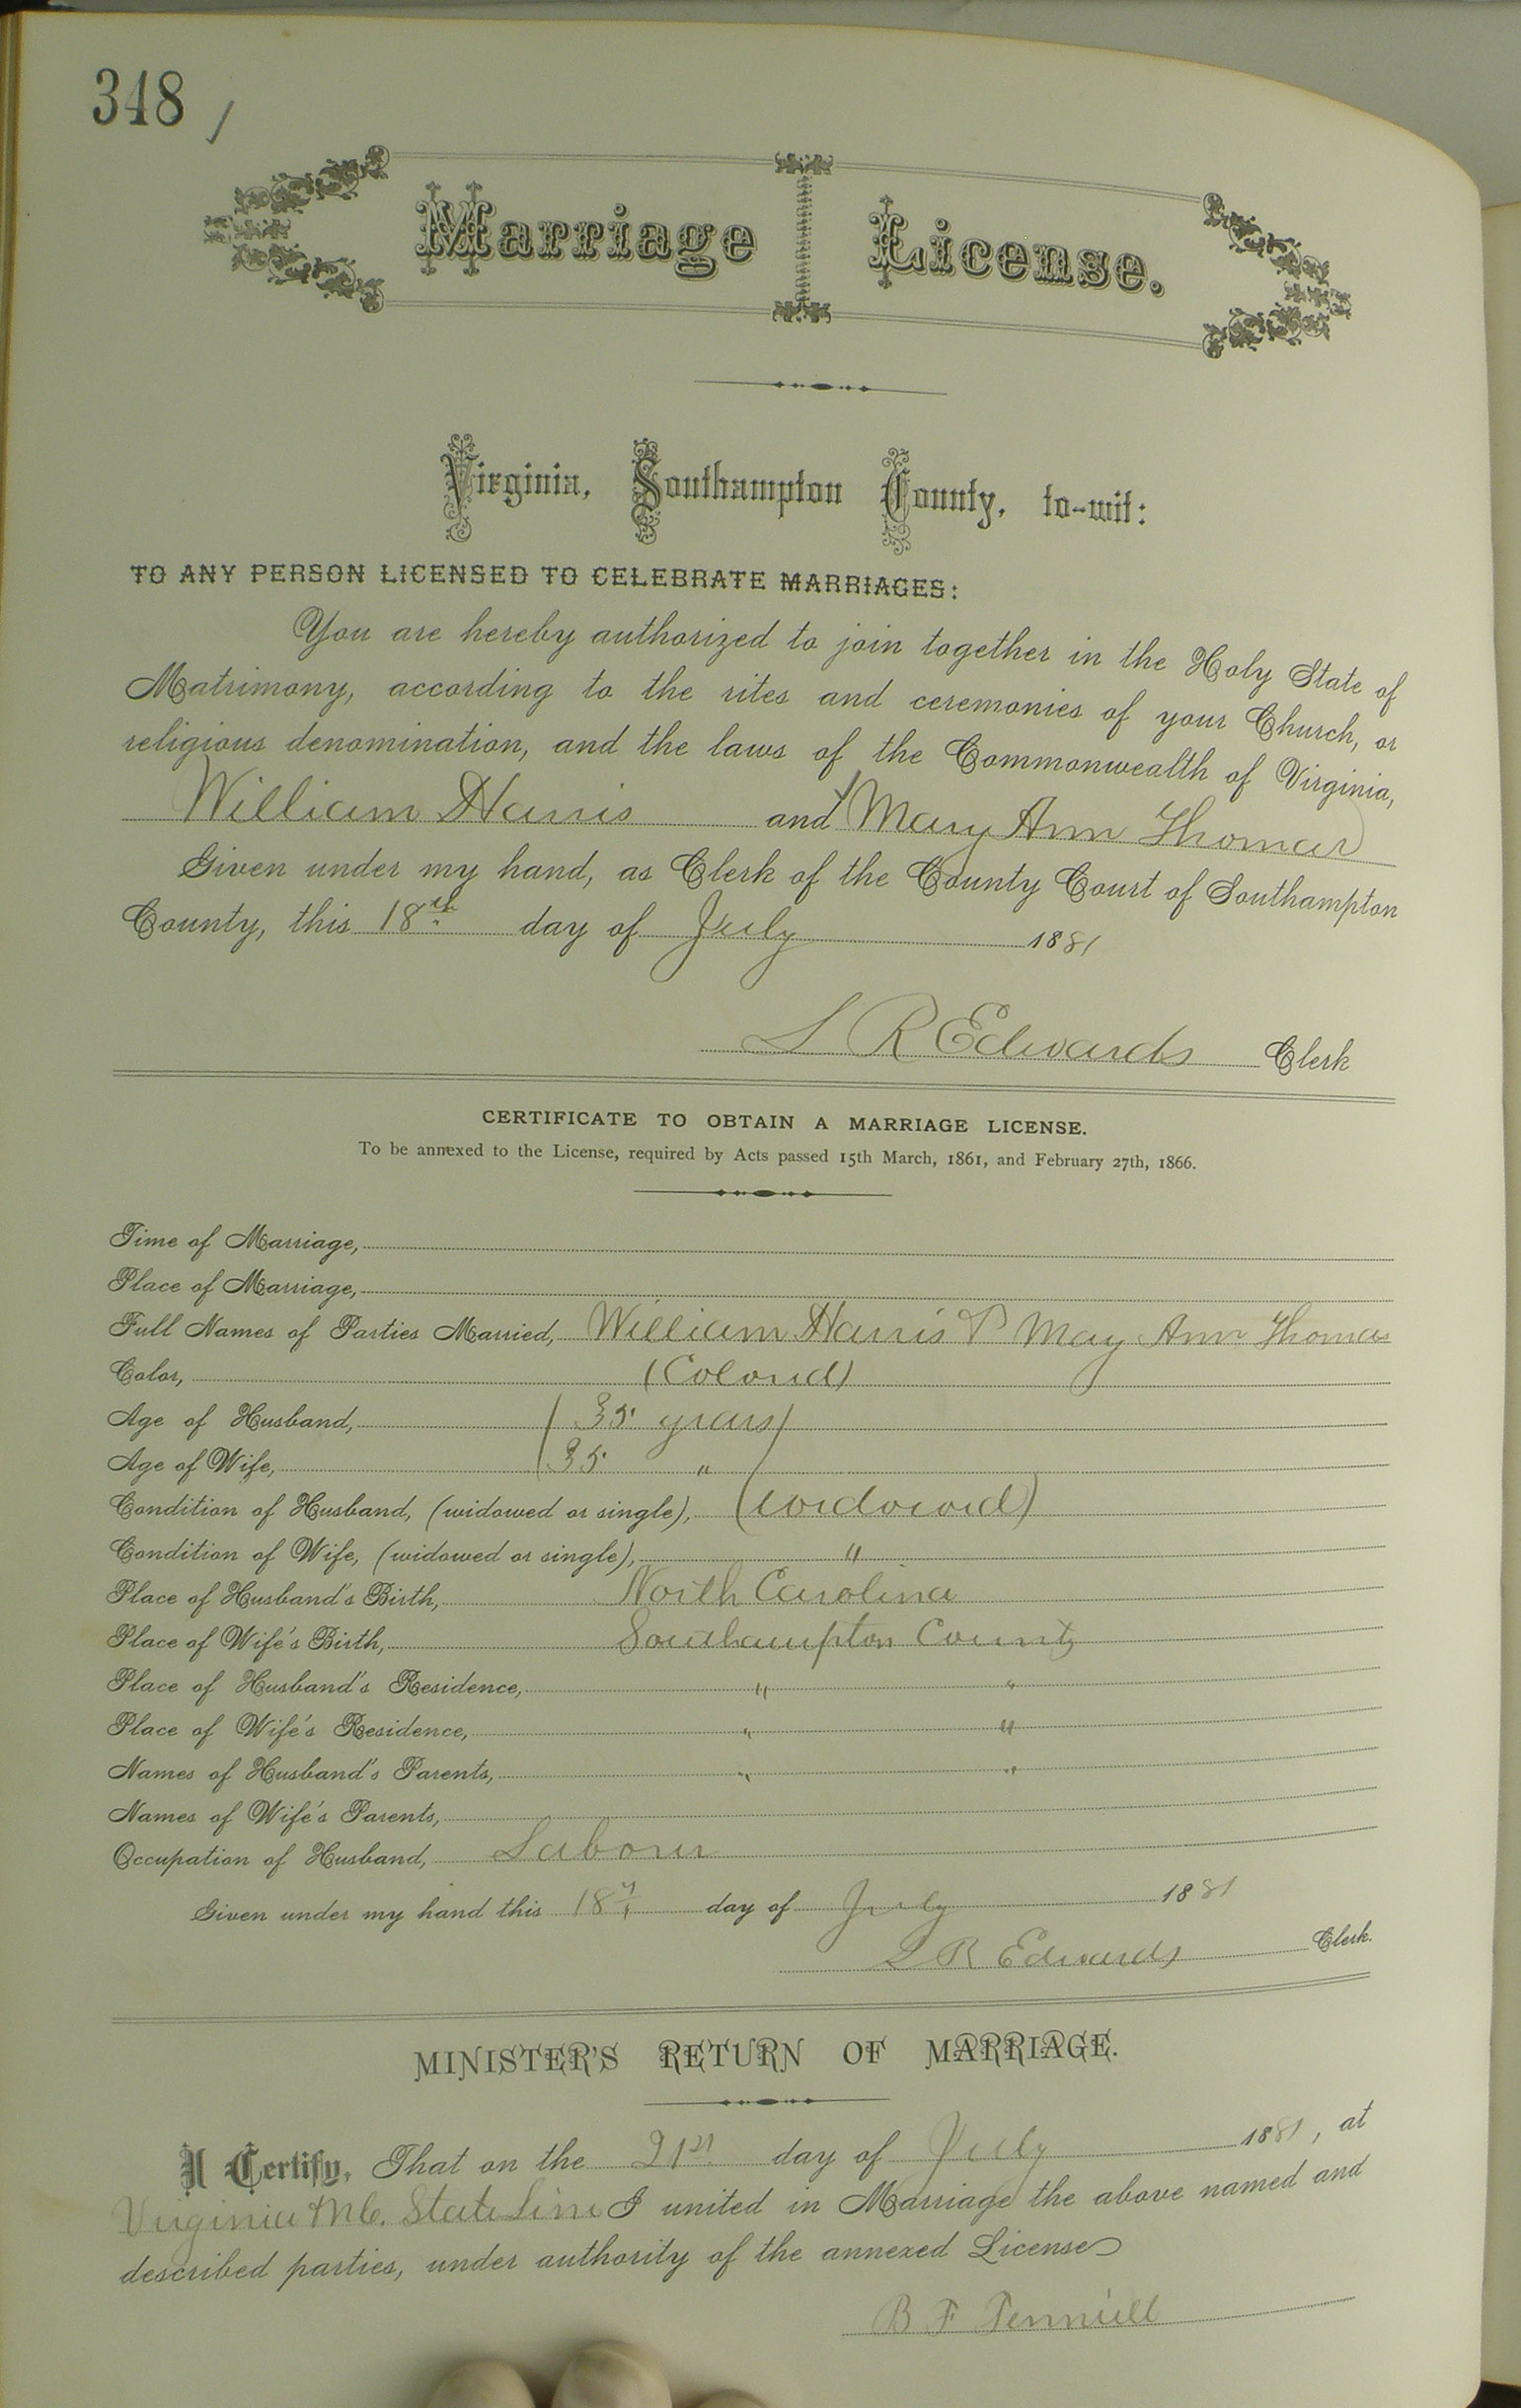 348 /
Marriage License.
Virginia, Southampton County, to-wit:
TO ANY PERSON LICENSED TO CELEBRATE MARRIAGES:
You are hereby authorized to join together in the Holy State of
Matrimony, according to the rites and ceremonies of your Church, or
religious denomination, and the laws of the Commonwealth of Virginia,
William Harris and Mary Ann Thomas
Given under my hand, as Clerk of the County Court of Southampton
County, this 18th day of July 1881
L R Edwards Clerk
CERTIFICATE TO OBTAIN A MARRIAGE LICENSE.
To be annexed to the License, required by Acts passed 15th March, 1861, and February 27th, 1866.
Time of Marriage,
Place of Marriage,
Full Names of Parties Married, William Harris & Mary Ann Thomas
Color, (Colored)
Age of Husband, (35 years)
Age of Wife, (35 " )
Condition of Husband, (widowed or single), (widowed)
Condition of Wife, (widowed or single), "
Place of Husband's Birth, North Carolina
Place of Wife's Birth, Southampton County
Place of Husband's Residence, " "
Place of Wife's Residence, " "
Names of Husband's Parents, " "
Names of Wife's Parents,
Occupation of Husband, Laborer
Given under my hand this 18th day of July 1881
L R Edwards Clerk.
MINISTER'S RETURN OF MARRIAGE.
I Certify, That on the 21st day of July 1881, at
Virginia & N.C. State Line I united in Marriage the above named and
described parties, under authority of the annexed License
B F